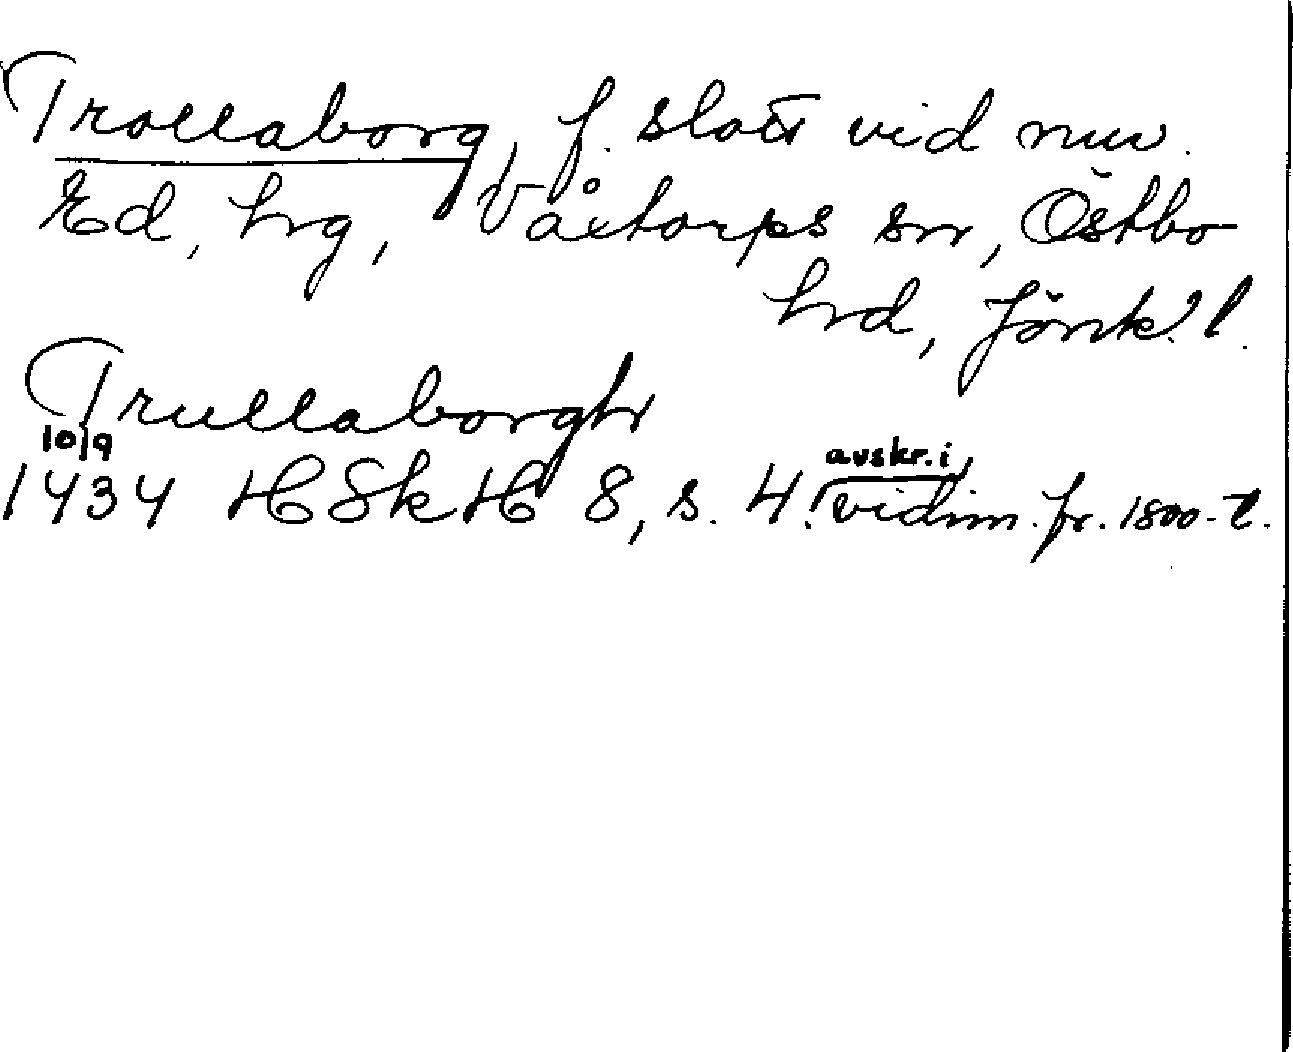 Trollaborg, f. slott vid nuv.
Ed, hrg, Våxtorps sn, Östbo
hrd, Jönk. l.
Trullaborgh
10/9
avskr. i
1434 HSkH 8, s. 4! vidim. fr. 1800-t.